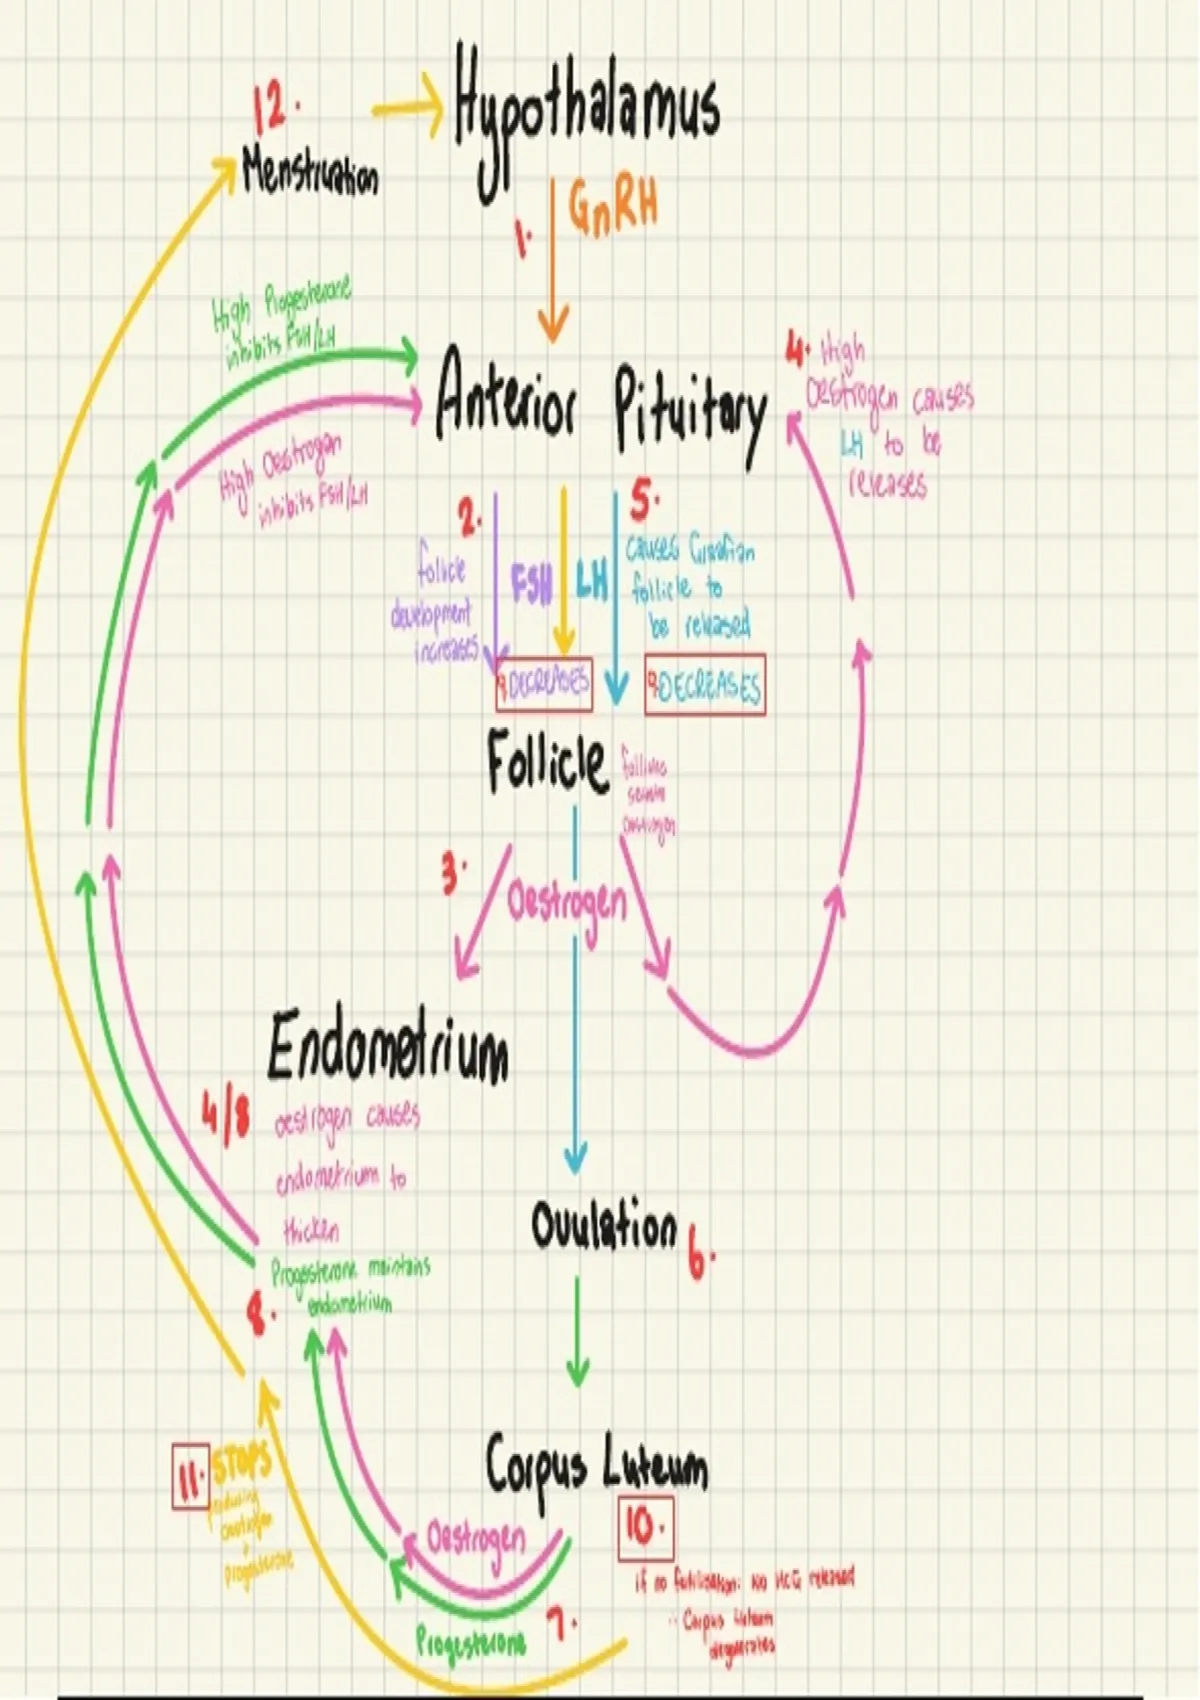 12.
Menstruation
Hypothalamus
1.
GnRH
High Progesterone
inhibits FSH/LH
High Oestrogen
inhibits FSH/LH
Anterior Pituitary
4. High
Oestrogen causes
LH to be
releases
2.
follicle
development
increases
FSH
LH
5.
causes Graafian
follicle to
be released
9 DECREASES
9 DECREASES
Follicle
secrete
3.
Oestrogen
Endometrium
4/8
oestrogen causes
endometrium to
thicken
Progesterone maintains
endometrium
8.
Ovulation 6.
Corpus Luteum
10.
if no fertilisation: no HCG released
∴ Corpus Luteum
degenerates
11. STOPS
producing
oestrogen
+
progesterone
Oestrogen
Progesterone
7.